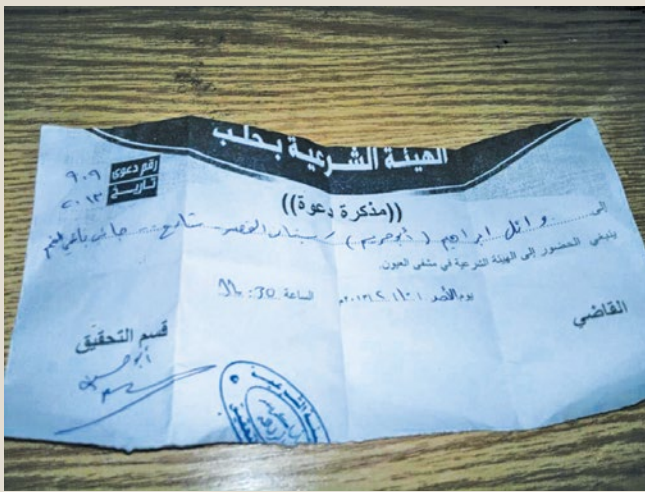 الهيئة الشرعية بحلب
رقم دعوى ٩٠٩
تاريخ ٢٠١٣
((مذكرة دعوة))
إلى..... وائل ابراهيم ( أبو مريم ) بستان القصر - شارع
ينبغي الحضور إلى الهيئة الشرعية في مشفى العيون.
يوم الأحد الساعة 30 :
القاضي
قسم التحقيق
أبو حسين